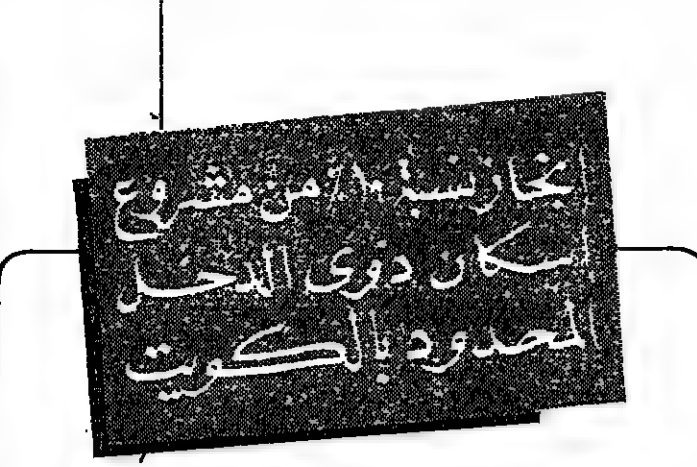 انجاز نسبة ١٠٪ من مشروع
اسكان ذوى الدخل
المحدود بالكويت